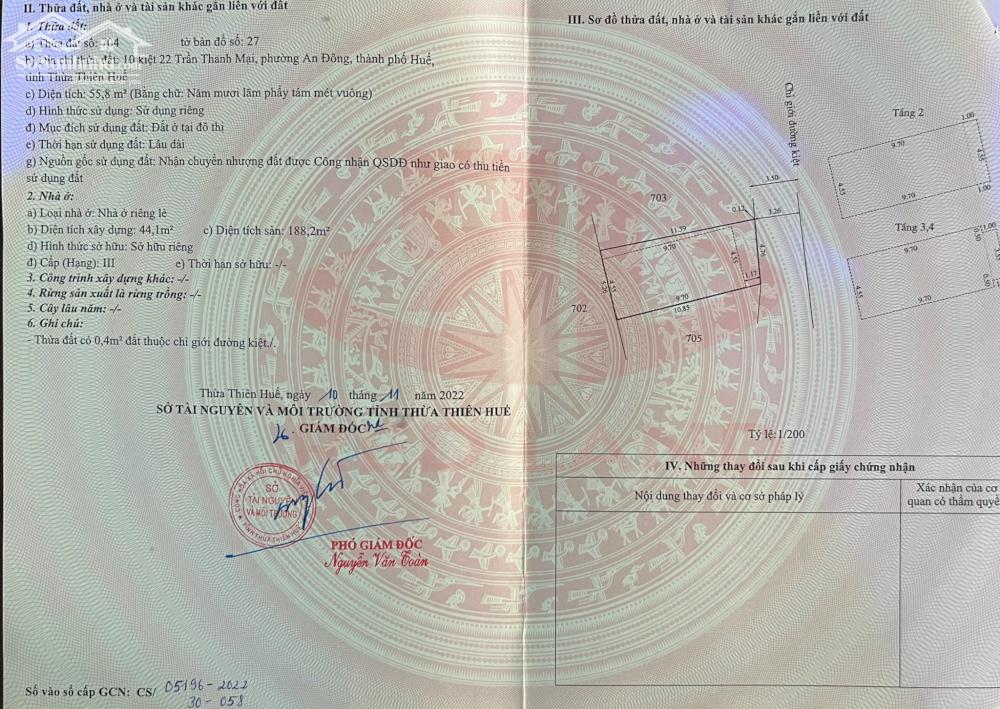 II. Thửa đất, nhà ở và tài sản khác gắn liền với đất
1. Thửa đất:
a) Thửa đất số: 704 tờ bản đồ số: 27
b) Địa chỉ thửa đất: 10 kiệt 22 Trần Thanh Mại, phường An Đông, thành phố Huế,
tỉnh Thừa Thiên Huế
c) Diện tích: 55,8 m² (Bằng chữ: Năm mươi lăm phẩy tám mét vuông)
d) Hình thức sử dụng: Sử dụng riêng
đ) Mục đích sử dụng đất: Đất ở tại đô thị
e) Thời hạn sử dụng đất: Lâu dài
g) Nguồn gốc sử dụng đất: Nhận chuyển nhượng đất được Công nhận QSDĐ như giao có thu tiền
sử dụng đất
2. Nhà ở:
a) Loại nhà ở: Nhà ở riêng lẻ
b) Diện tích xây dựng: 44,1m² c) Diện tích sàn: 188,2m²
d) Hình thức sở hữu: Sở hữu riêng
đ) Cấp (Hạng): III e) Thời hạn sở hữu: -/-
3. Công trình xây dựng khác: -/-
4. Rừng sản xuất là rừng trồng: -/-
5. Cây lâu năm: -/-
6. Ghi chú:
- Thửa đất có 0,4m² đất thuộc chỉ giới đường kiệt./.
Thừa Thiên Huế, ngày 10 tháng 11 năm 2022
SỞ TÀI NGUYÊN VÀ MÔI TRƯỜNG TỈNH THỪA THIÊN HUẾ
GIÁM ĐỐC
SỞ
TÀI NGUYÊN
VÀ MÔI TRƯỜNG
TỈNH THỪA THIÊN HUẾ
PHÓ GIÁM ĐỐC
Nguyễn Văn Toàn
Số vào sổ cấp GCN: CS/ 05196-2022
30-058
III. Sơ đồ thửa đất, nhà ở và tài sản khác gắn liền với đất
Chỉ giới đường kiệt
Tầng 2
1.00
9.70
4.55
4.55
9.70
1.00
Tầng 3,4
0.50
1.00
9.70
4.55
0.50
9.70
703
3.50
0.12
3.26
11.39
9.70
4.76
4.55
1.17
4.55
5.20
702
9.70
10.85
705
Tỷ lệ: 1/200
IV. Những thay đổi sau khi cấp giấy chứng nhận
Nội dung thay đổi và cơ sở pháp lý
Xác nhận của cơ
quan có thẩm quyề